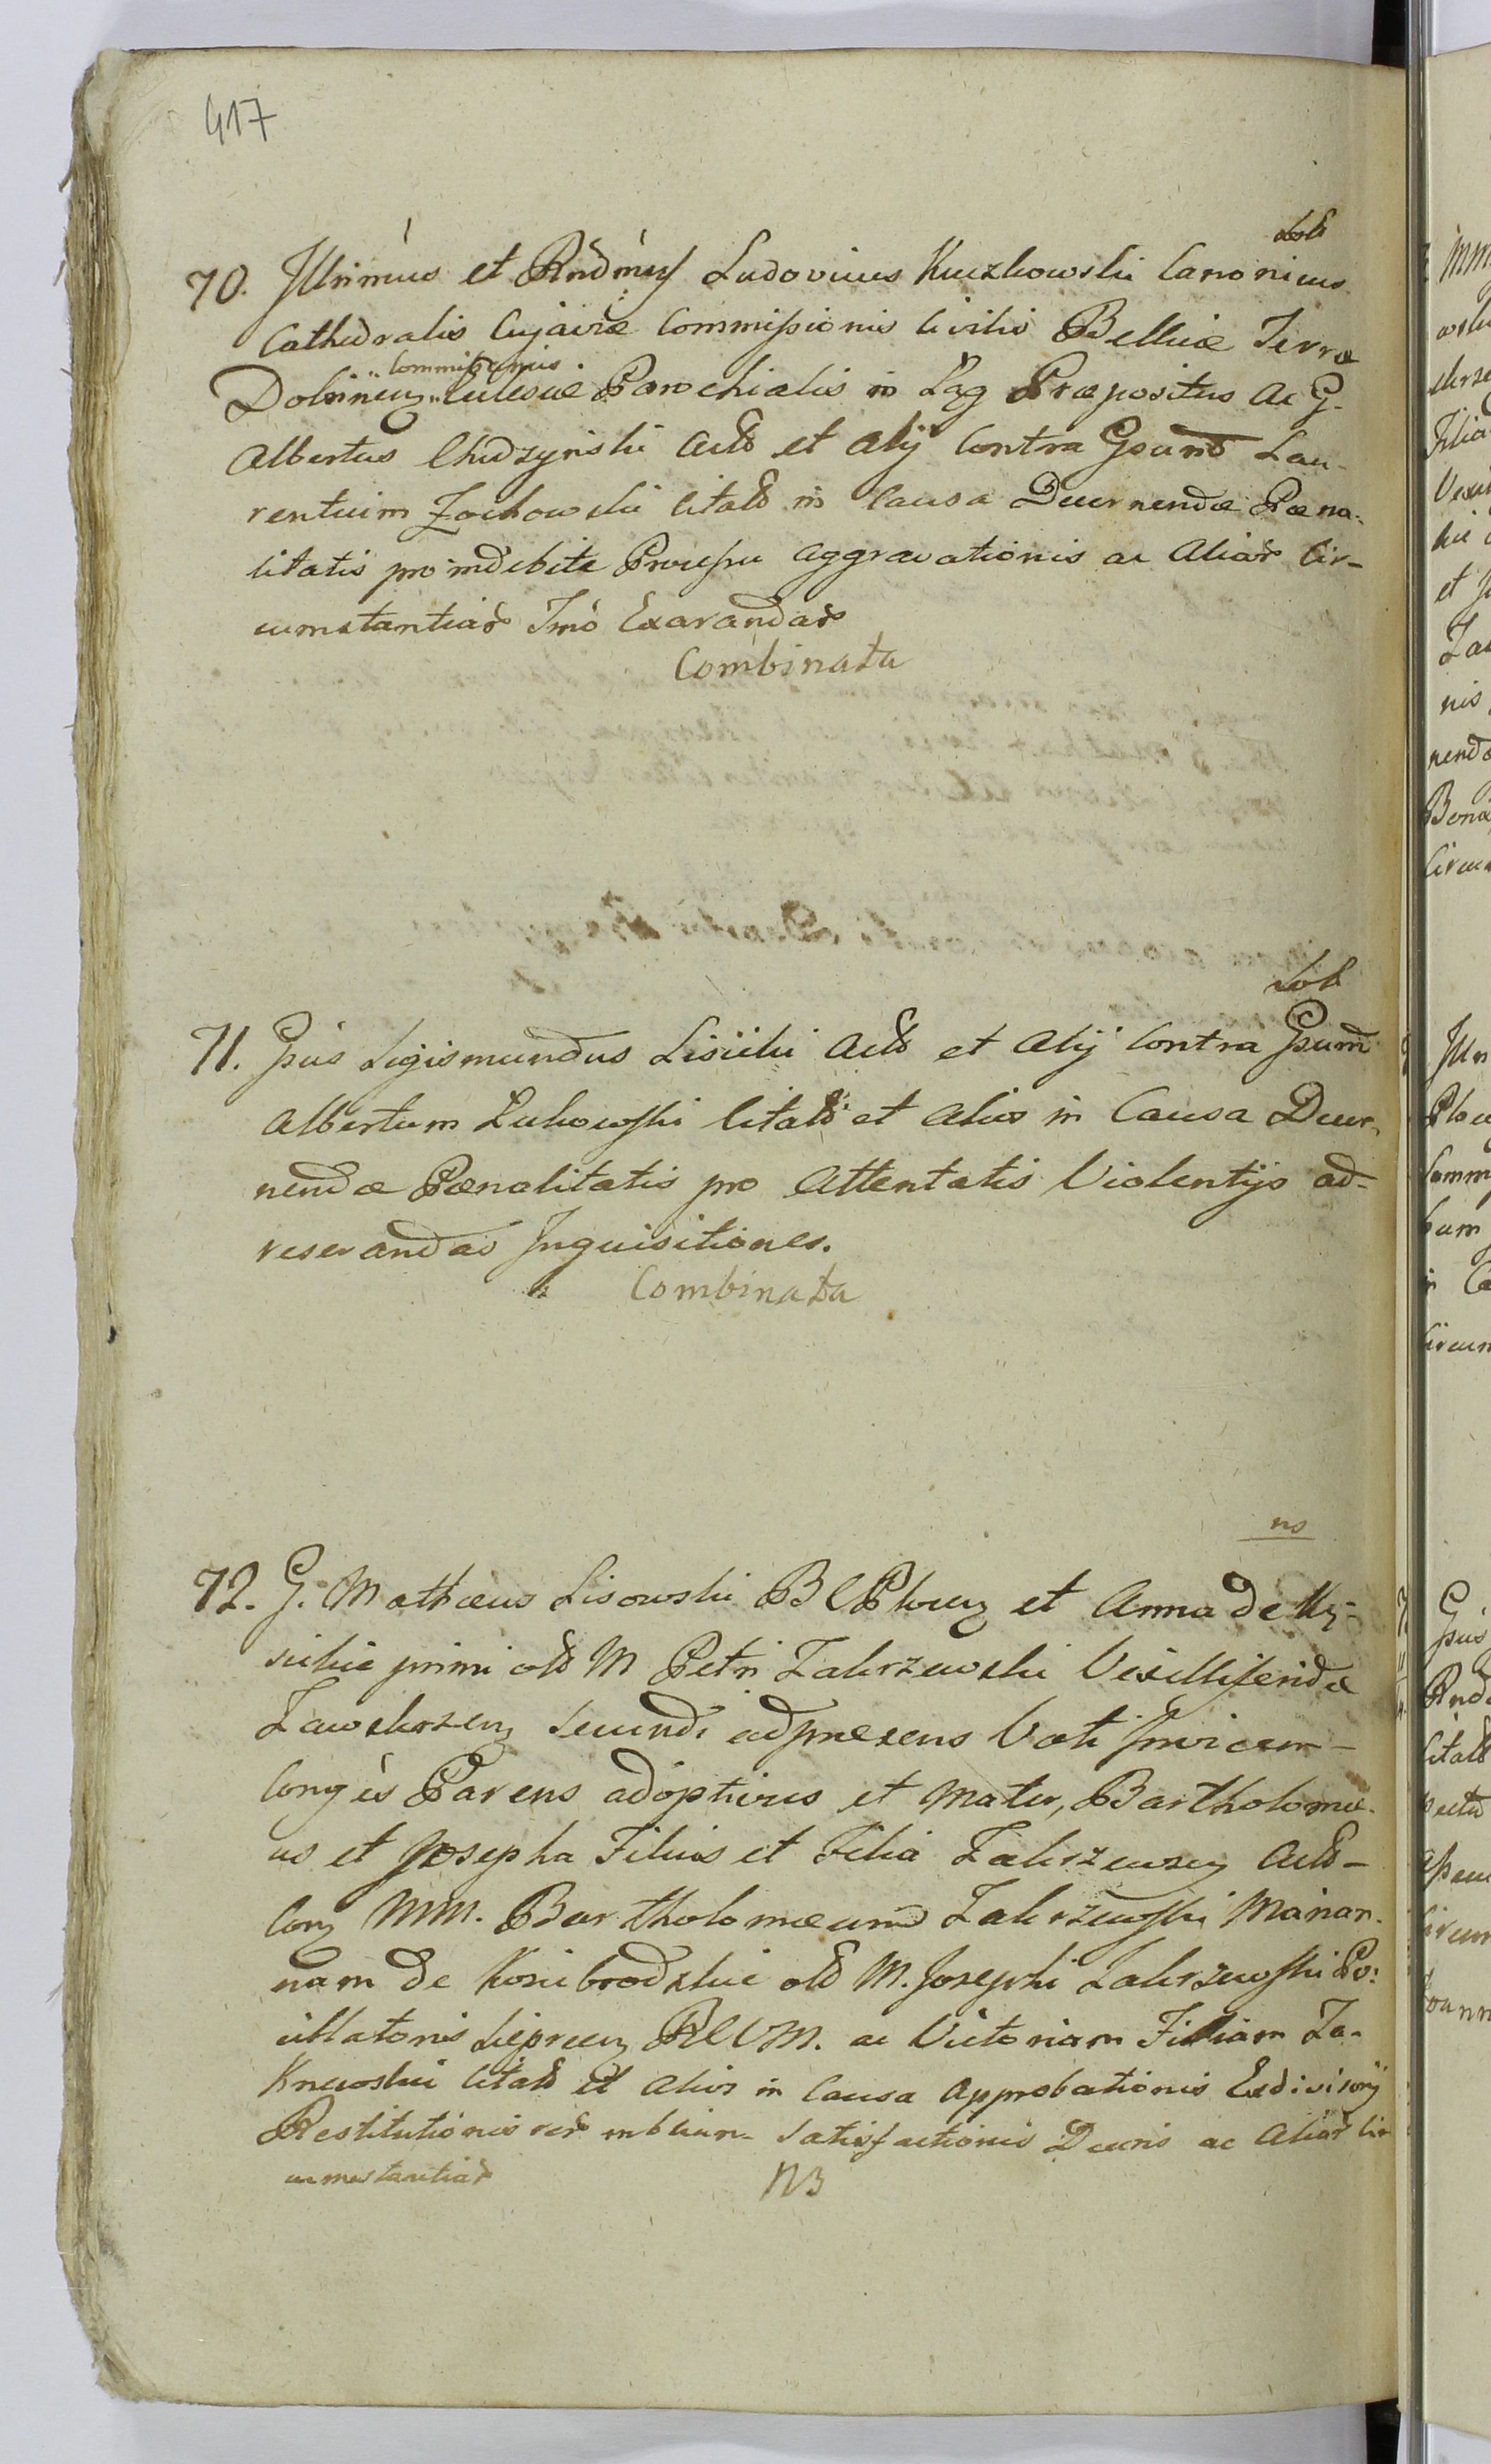 417
70. Jllrimus et Rndmus Ludovicus Kuczkowski Canonicus
Cathedralis Cujaviæ Commissionis Civilis Bellicæ Terræ
Commissarius
Dobrinen Ecclesiæ Parochialis in Łąg Præpositus ac G.
Albertus Chudzynski Act et Alij Contra Gsum Lau-
rentium Zochowski Citat in Causa Decernendæ Pæna-
litatis pro indebite Processu aggravationis ac Aliar Cir-
cumstantiar Imo Exarandar
Combinata
71. Gsus Sigismundus Lisicki Act et Alij Contra Gsum
Albertum Łukowski Citat et Alios in Causa Decer-
nendæ Pænalitatis pro Attentatis Violentijs ad-
reserandas Inquisitiones.
Combinata
ns
72. G. Mathæus Lisowski B C Płocen et Anna de
primi olt M Petri Zakrzewski Vexilliferidæ
Zawskrzen secundi adpræsens Voti Invicem-
Congēs Parens adoptivus et Mater, Bartholomæ-
us et Josepha Filius et Filia Zakrzewscy Act-
Con MM. Bartholomæum Zakrzewski Marian-
nam de Kosiebrodzkie olt M. Josephi Zakrzewski Po-
cillatoris Sieprcen ac Victoriam Filiam Za-
Krzewskie Citat et Alios in Causa Approbationis Exdivisorij
Restitutionis rer Satisfactionis Decris ac Aliar Cir
cumstantiar
NB